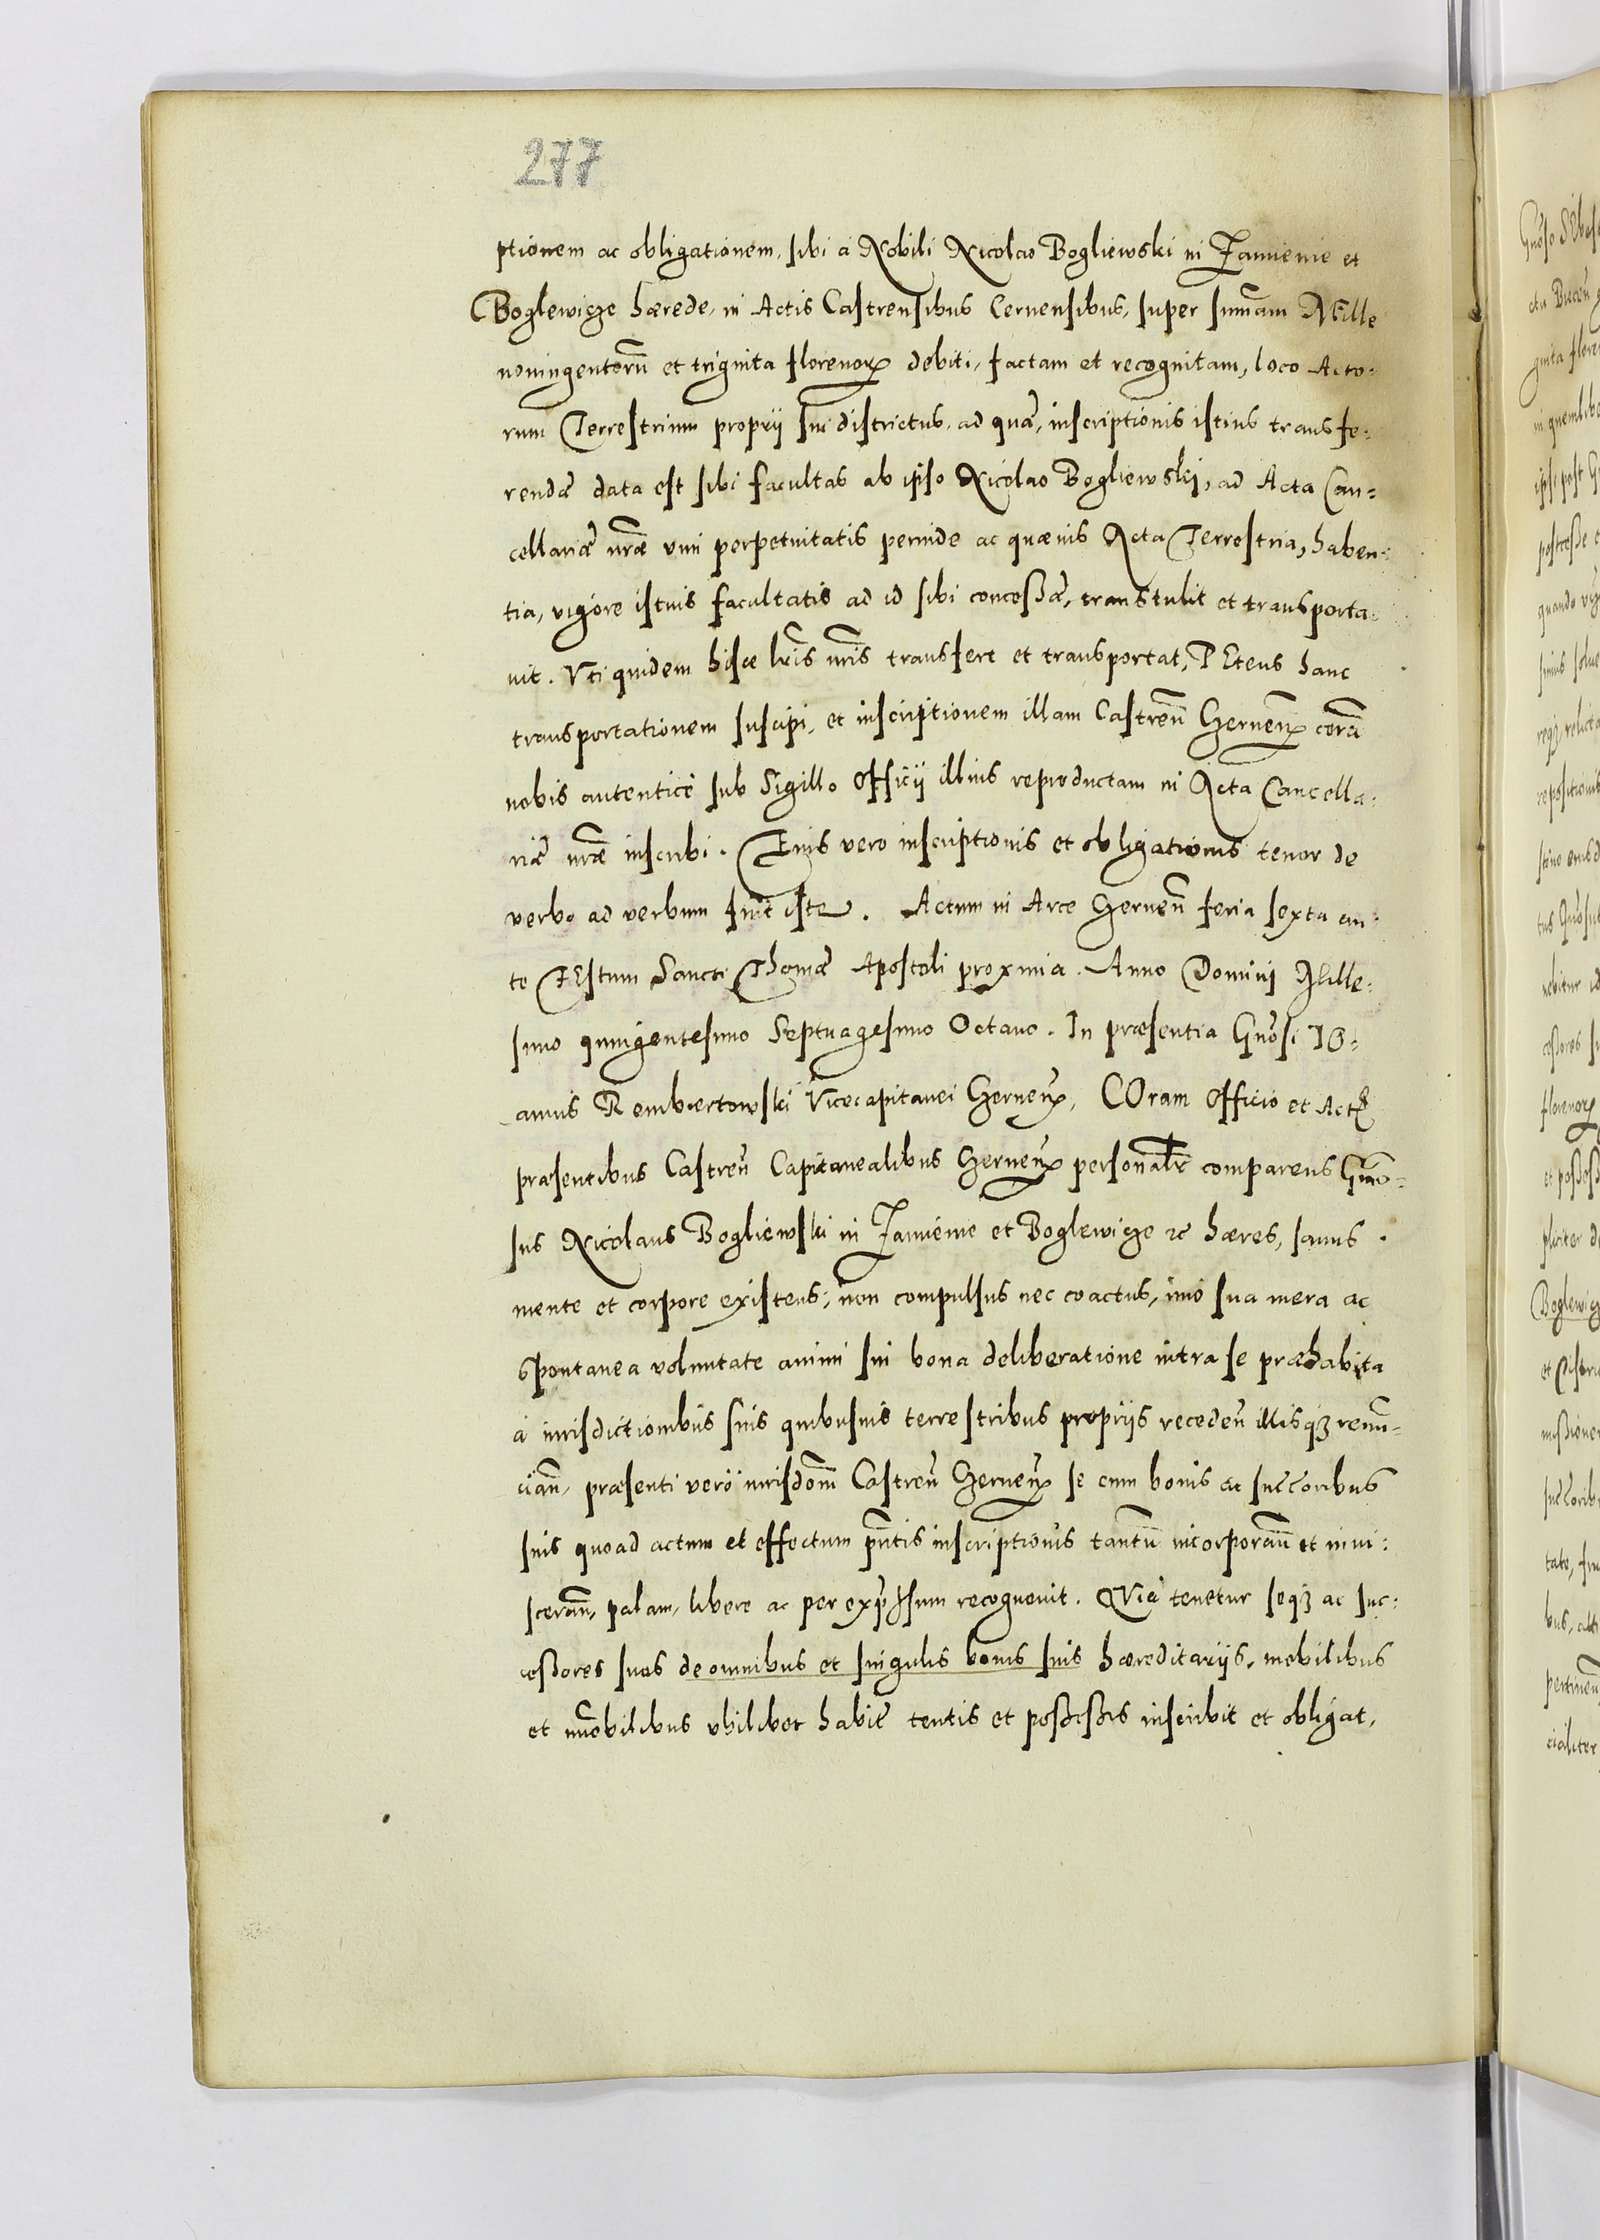 277
ptionem ac obligationem, sibi à Nobili Nicolao Bogliewski in Janienie et
Boglewicze hærede, in Actis Castrensibus Cernensibus, super sum̃am Mille
noningentorũ et triginta florenorꝝ debiti, factam et recognitam, loco Acto=
rum Terrestrium proprij sui districtus, ad quã, inscriptionis istius transfe=
rendæ data est sibi facultas ab ipso Nicolao Bogliewski, ad Acta Can=
cellariæ nr̃æ vim perpetuitatis perinde ac quæuis Acta Terrestria, haben=
tia, vigore istius facultatis ad id sibi concessæ, transtulit et transporta=
uit. Vti quidem hisce lr̃is nr̃is transfert et transportat, PEtens hanc
transportationem suscipi, et inscriptionem illam Castreñ Czerneñ corã
nobis autenticè sub Sigillo Officij illius reproductam in Acta Cancella=
riæ nr̃æ inscribi. Eius vero inscriptionis et obligationis tenor de
verbo ad verbum fuit iste. Actum in Arce Czerneñ feria sexta an=
te FEstum Sancti Thomæ Apostoli proxima. Anno Domini Mille=
simo quingentesimo Septuagesimo Octauo. In præsentia Gñosi IO=
annis Rembertowski Vicecapitanei Czerneñ, COram Officio et Actis
præsentibus Castreñ Capitanealibus Czerneñ personalr̃ comparens Gñro=
sus Nicolaus Bogliewski in Janienie et Boglewicze etc hæres, sanus
mente et corpore existens, non compulsus nec coactus, imò sua mera ac
spontanea voluntate animi sui bona deliberatione intra se præhabita
à iurisdictionibus suis quibusuis terrestribus proprijs recedeñ illisqз renũ=
ciañ, præsenti verò iurisdom̃ Castreñ Czerneñ se cum bonis ac succ̃oribus
suis quoad actum et effectum pñtis inscriptionis tantũ incorporañ et inui=
scerañ, palam, libere ac per expr̃ssum recognouit. QVia tenetur seqз ac suc=
cessores suos de omnibus et singulis bonis suis hæreditarijs, mobilibus
et im̃obilibus vbilibet habit̃ tentis et possessis inscribit et obligat,